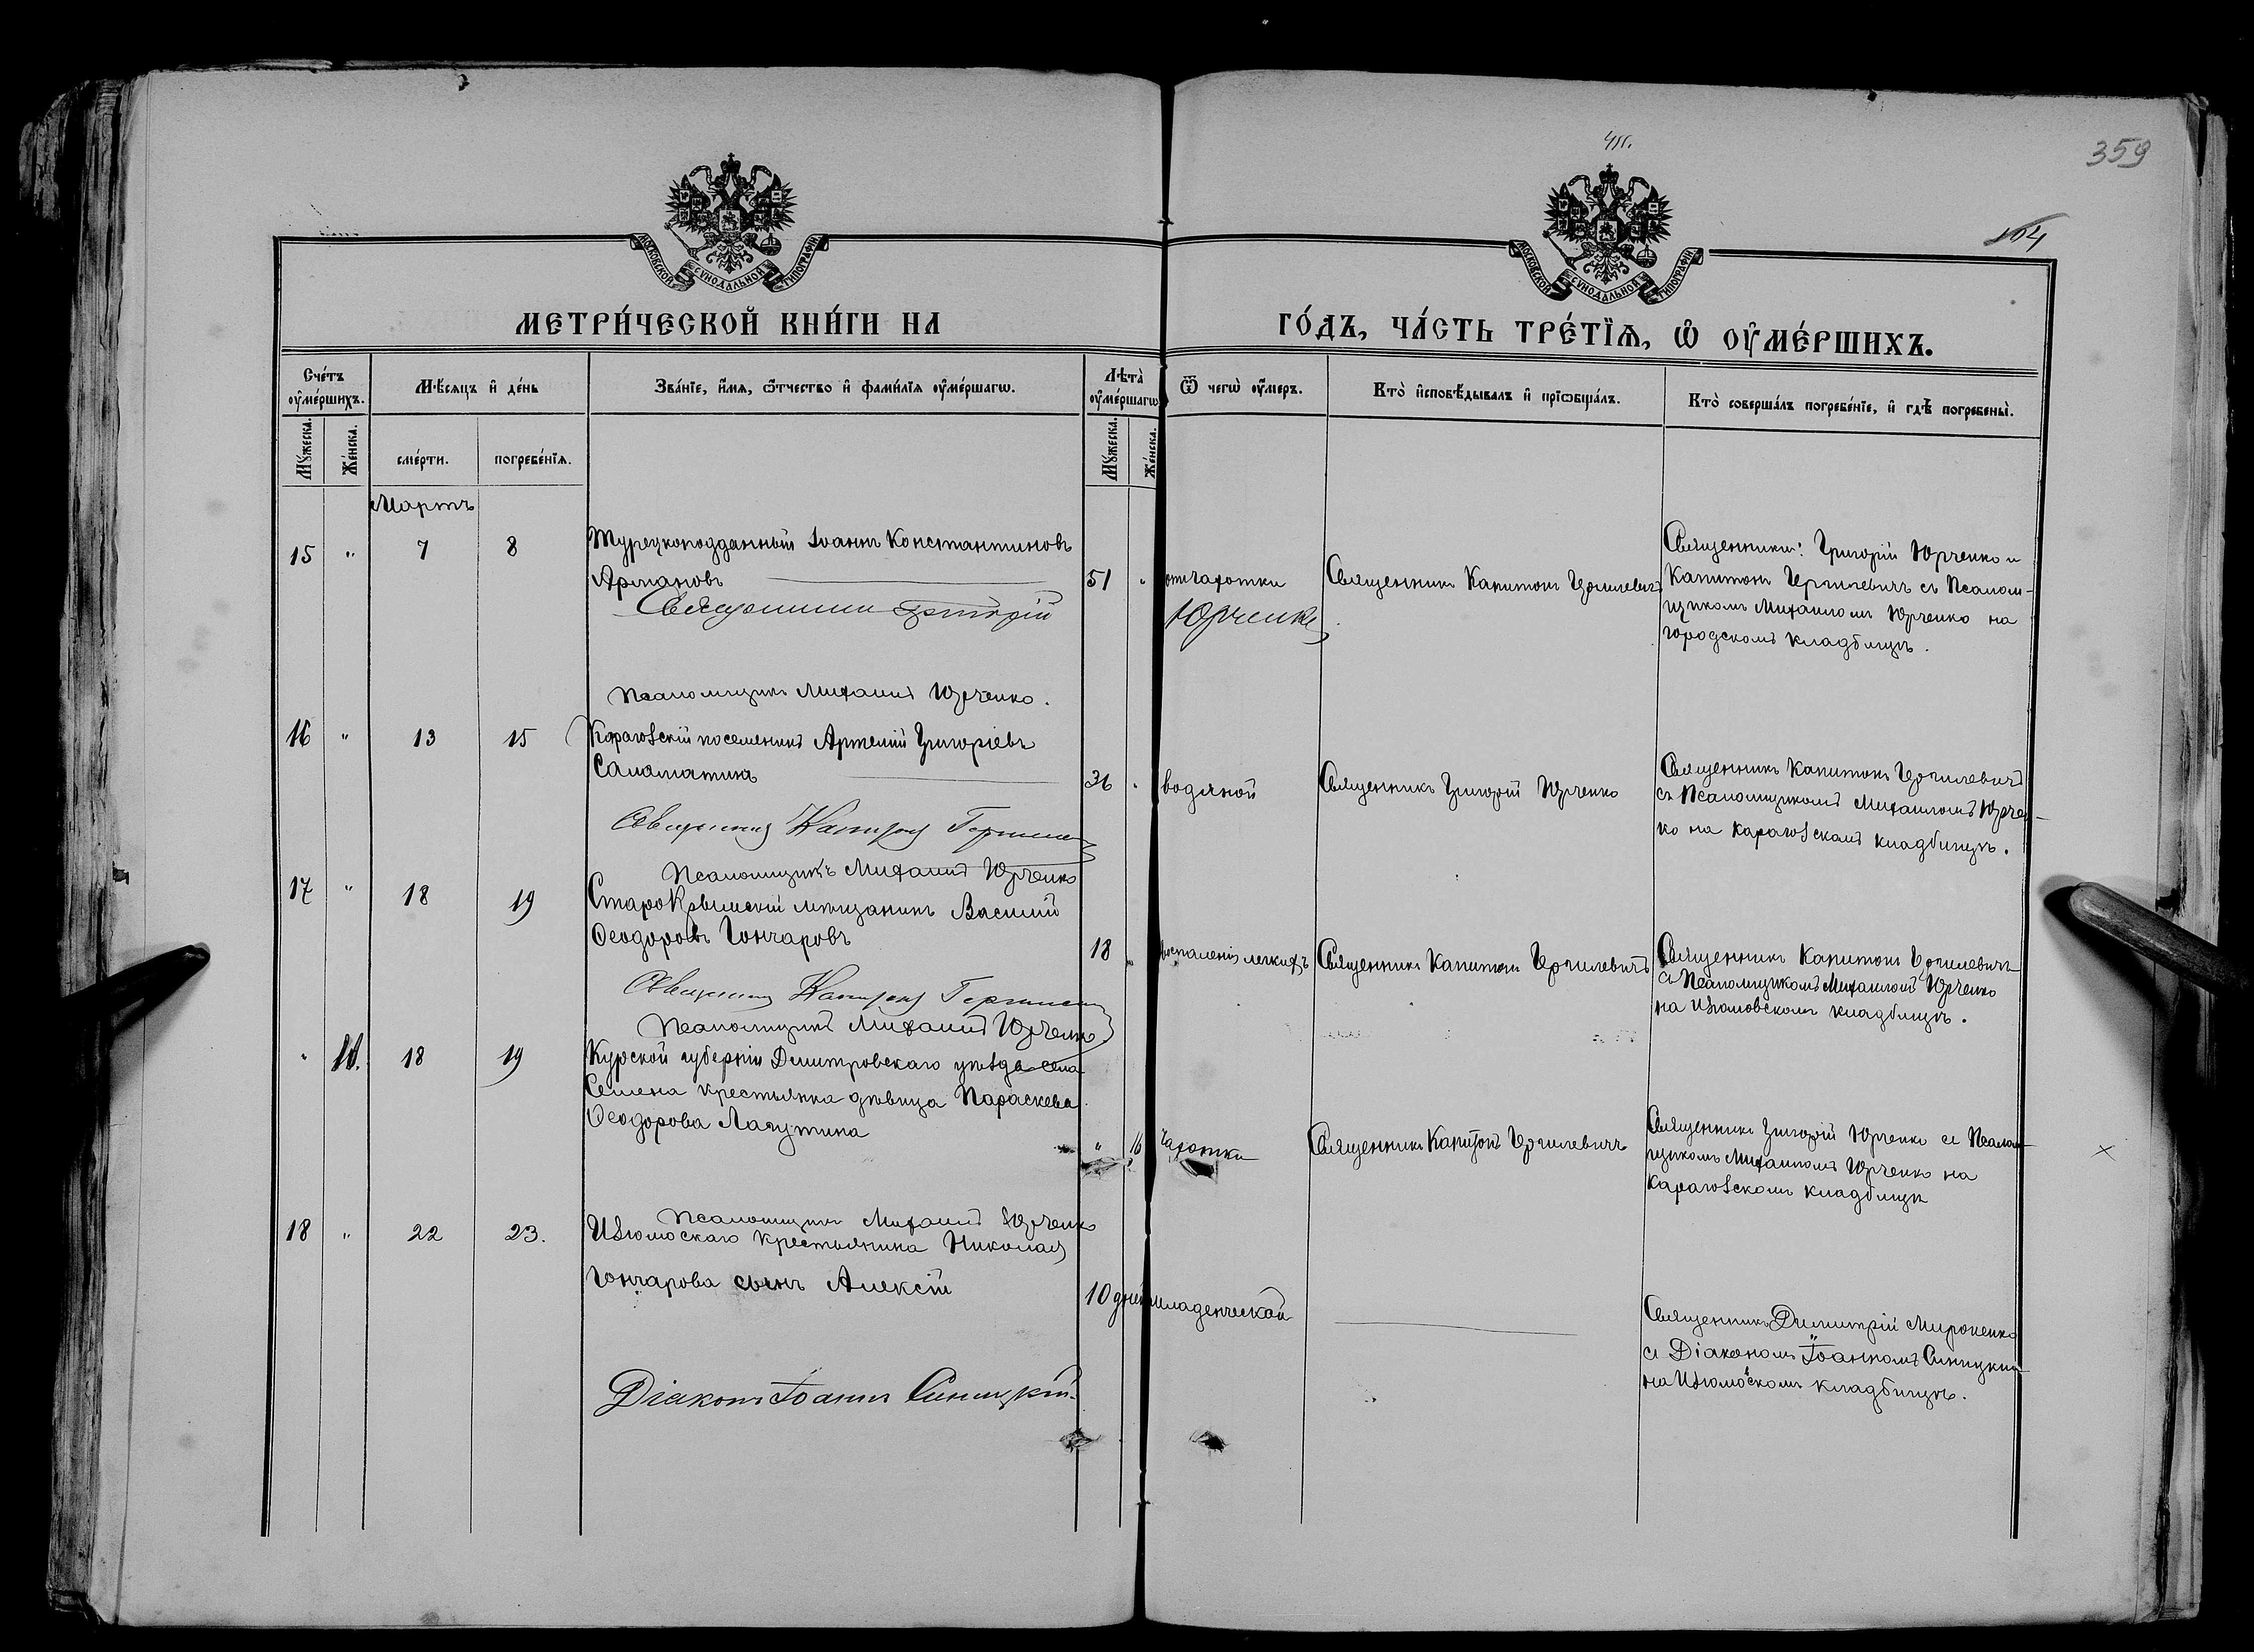 359
164
МОСКОВСКОЙ СѴНОДАЛЬНОЙ ТИПОГРАФІИ
МОСКОВСКОЙ СѴНОДАЛЬНОЙ ТИПОГРАФІИ
МЕТРИ́ЧЕСКОЙ КНИ́ГИ НА
ГО́ДЪ, ЧА́СТЬ ТРЕ́ТЇѦ, Ѡ҆ ОУ҆МЕ́РШИХЪ.
Сче́тъ оу҆ме́ршихъ.
Мѣ́сяцъ и҆ де́нь
Зва́нїе, и҆́мѧ, ѻ҆́тчество и҆ фами́лїѧ оу҆ме́ршагѡ.
Лѣта̀ оу҆ме́ршагѡ
Ѿ чегѡ̀ оу҆́меръ.
Кто̀ и҆сповѣ́дывалъ и҆ прїѡбща́лъ.
Кто̀ соверша́лъ погребе́нїе, и҆ гдѣ̀ погребены̀.
Му́жеска.
Же́нска.
сме́рти.
погребе́нїѧ.
Му́жеска.
Же́нска.
Мартъ
15 " 7 8
Турецкоподданный Іоаннъ Константиновъ
Армановъ
51 " отъ чахотки
Священникъ Капитонъ
Священники: Григорій Юрченко и
Капитонъ съ Псалом-
щикомъ Михаиломъ Юрченко на
городскомъ кладбищѣ.
Священникъ Григорій Юрченко
Псаломщикъ Михаилъ Юрченко.
16 " 13 15
Карагозскій поселенинъ Артемій Григоріевъ
Саломатинъ
36 " водяной
Священникъ Григорій Юрченко
Священникъ Капитонъ
съ Псаломщикомъ Михаиломъ Юрчен-
ко на Карагозскомъ кладбищѣ.
Священникъ Капитонъ
Псаломщикъ Михаилъ Юрченко
17 " 18 19
СтароКрымскій мѣщанинъ Василій
Ѳеодоровъ Гончаровъ
18 " воспаленія легкихъ
Священникъ Капитонъ
Священникъ Капитонъ
съ Псаломщикомъ Михаиломъ Юрченко
на Изюмовскомъ кладбищѣ.
Священникъ Капитонъ
Псаломщикъ Михаилъ Юрченко
" 18 19
Курской губерніи Дмитровскаго уѣзда села
Семена крестьянка дѣвица Параскева
Ѳеодорова Лагутина
" 16 Чахотки
Священникъ Капитонъ
Священникъ Григорій Юрченко съ Псалом-
щикомъ Михаиломъ Юрченко на
Карагозскомъ кладбищѣ
Псаломщикъ Михаилъ Юрченко
18 " 22 23.
Изюмоскаго крестьянина Николая
Гончарова сынъ Алексій
10 дней младенческой
Священникъ Димитрій Мироненко
съ Діакономъ Іоанномъ Синицкимъ
на Изюмовскомъ кладбищѣ.
Діаконъ Іоаннъ Синицкій.